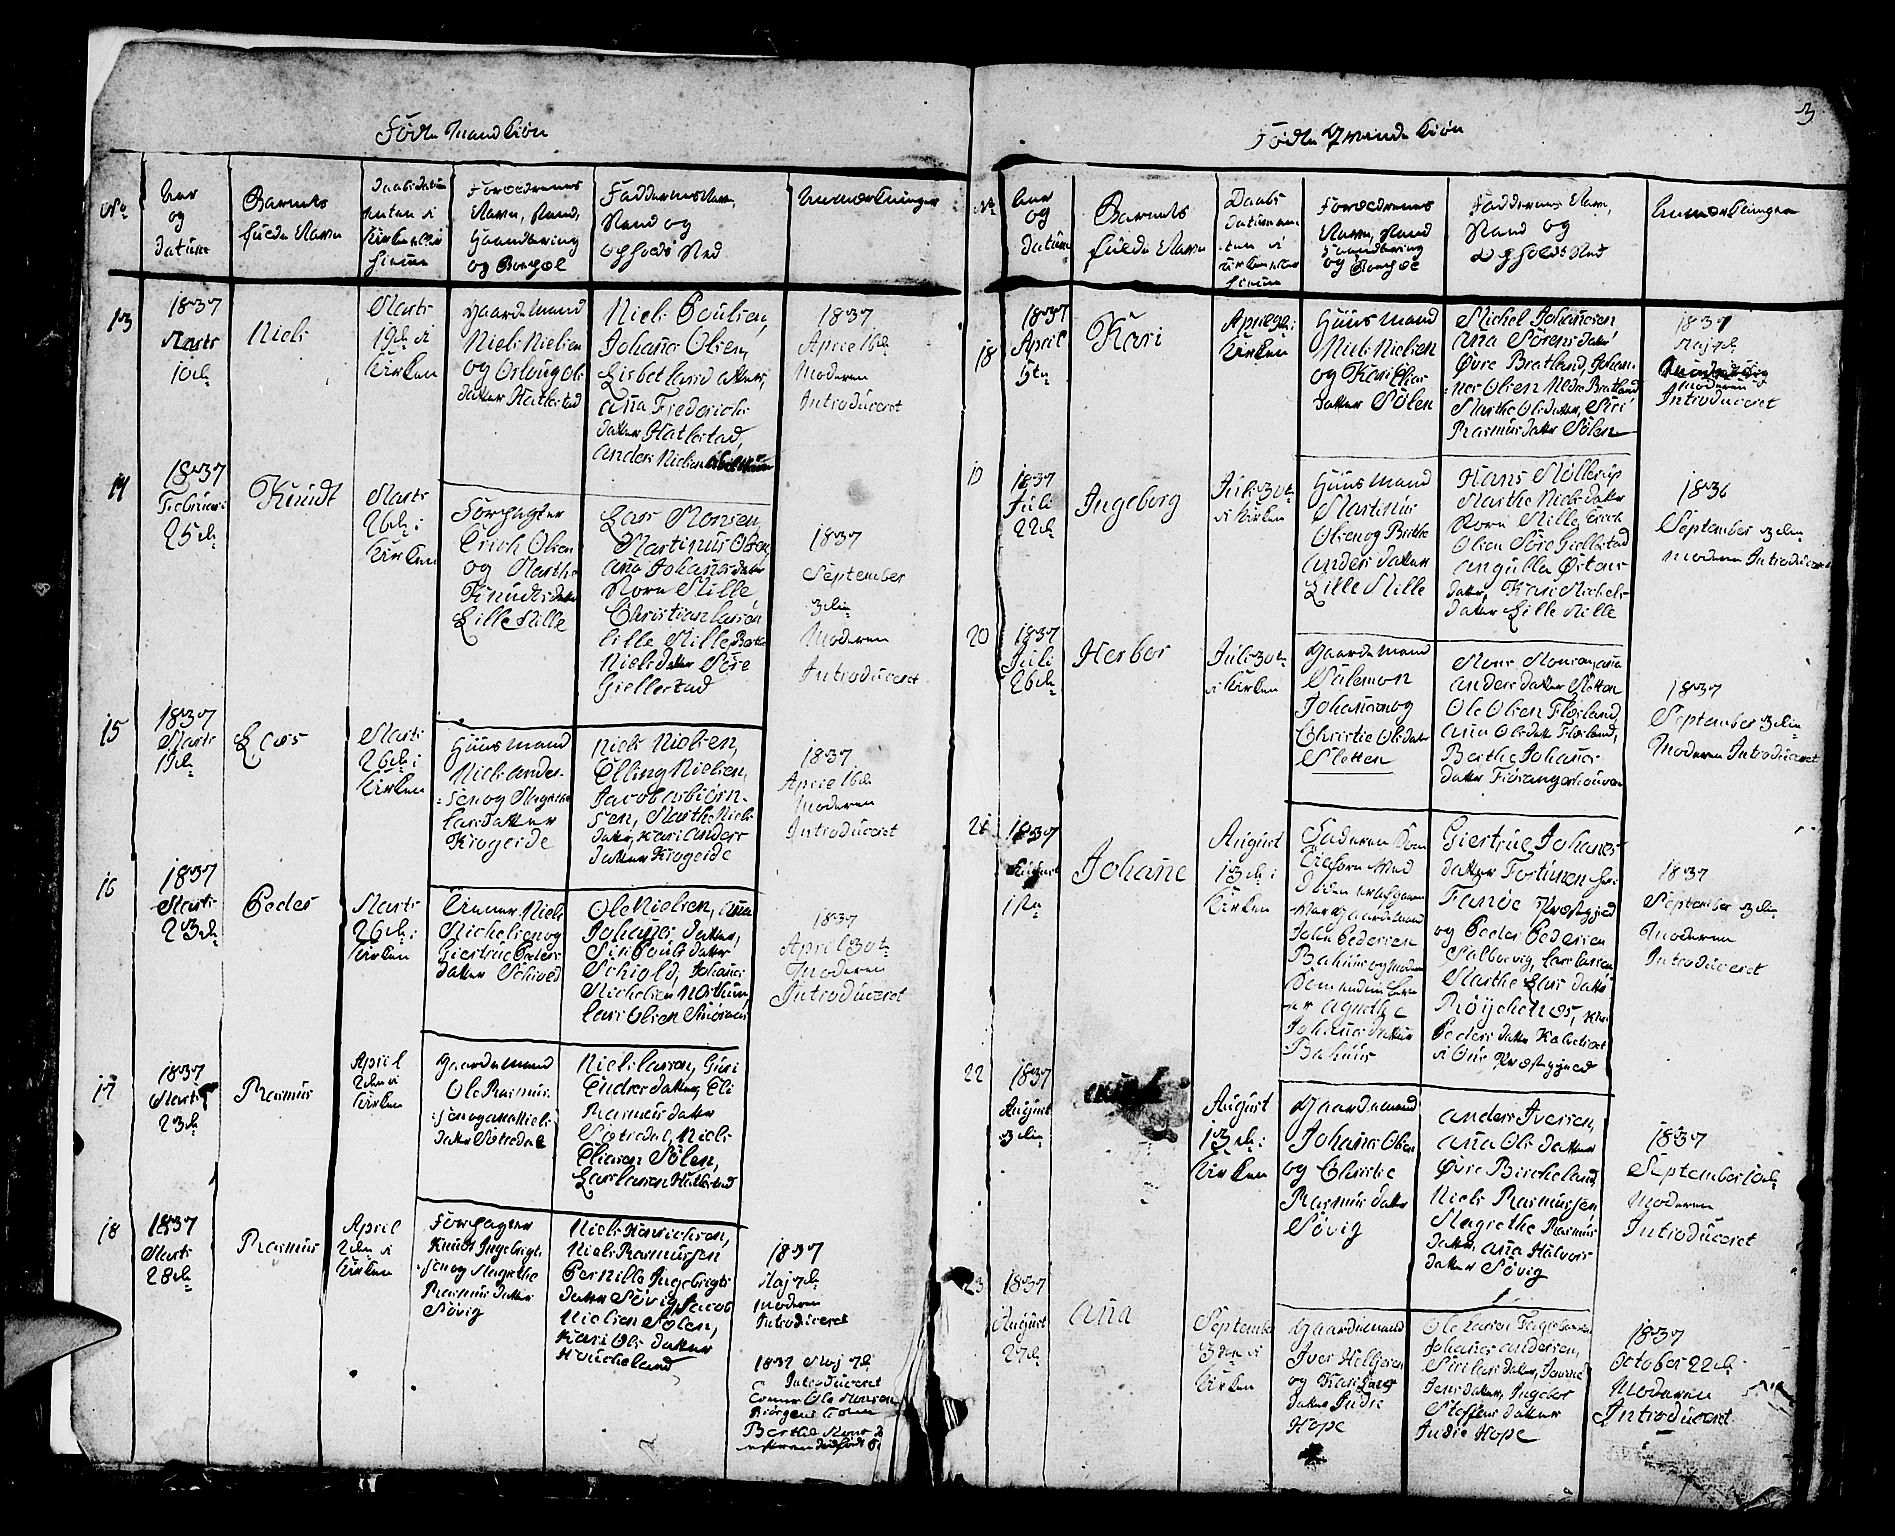 3
Fødte Mandkiøn
No
Aar
og
datum
Barnets
fulde Navn
Daabsdatum
enten i
Kirken eller
hiemme
Forældrenes
Navn, Stand,
Haandtering
og Bopæl
Faddernes Navn,
Stand og
opholds Sted
Anmærkninger
13
1837
Marts
10de
Niels
Marts
19de i
Kirken
Gaardemand
Niels Nielsen
og Osloug Ols
datter Hatlestad
Niels Poulsen,
Johanes Olsen,
Lisbet
Ana Frederichs
datter Hatlestad,
Anders Nielsen
1837
April 16de
Moderen
Introduceret
14
1837
Februari
25de
Knudt
Marts
26de i
Kirken
Forpagter
Erich Olsen
og Marthe
Knudtsdatter
Lille Mille
Lars Monsen,
Martinus Olsen,
Ana Johanesdatter
Store Mille
Christian Larsøn
lille Mille, Berthe
Nielsdatter Søre
Giellestad
1837
September
3die
Moderen
Introduceret
15
1837
Marts
19de
Lars
Marts
26de i
Kirken
Huusmand
Niels Ander-
sen og Magrethe
Larsdatter
Krogeide
Niels Nielsen,
Elling Nielsen,
Jacob Asbiørn-
sen, Marthe Niels
datter, Kari Anders
datter Krogeide
1837
April 16de
Moderen
Introduceret
16
1837
Marts
23de
Peder
Marts
26de i
Kirken
Niels
Michelsen og
Giertrue Peders
datter Schiold
Ole Nielsen, Ana
Johanes datter,
Siri Pouls datter
Schiold, Johanes
Michelsen
Lars Olsen
1837
April 30te
Moderen
Introduceret
17
1837
Marts
23de
Rasmus
April
2den i
Kirken
Gaardemand
Ole Rasmus-
sen og Ana Niels
datter Sætredal
Niels Larsen, Guri
Endresdatter, Eli
Rasmus datter
Sætredal, Niels
Eliasen Sølen,
Lars Larsen Hatlestad
18
1837
Marts
28de
Rasmus
April
2den i
Kirken
Forpagter
Knud Ingebrigt-
sen og Magrethe
Rasmus datter
Søvig
Niels Henrichsen,
Niels Rasmussen
Pernille Ingebrigts
datter Søvig, Jacob
Nielsen Sølen,
Kari Ols datter
Houcheland
1837
Maj 7de
Moderen
Introduceret
1837 Maj 7de
Introduceret
Ole Monsen
Fødte Qvindekiøn
No
Aar
og
datum
Barnets
fulde Navn
Daabs
datum en-
ten i
Kirken eller
hiemme
Forældrenes
Navn, Stand
Haandtering
og Bopæl
Faddernes Navn,
Stand og
opholds Sted
Anmærkninger
18
1837
April
5te
Kari
April
Kirken
Huusmand
Niels Nielsen
og Kari Elias
datter Sølen
Michel Johanesen
Ana Sørensdatter
Øvre Bratland, Johan-
nes Olsen Nedre Bratland
Marthe Olsdatter, Siri
Rasmusdatter Sølen
1837
Maj 7de
Moderen
Introduceret
19
1837
Juli
22de
Ingeborg
Juli 30te
i Kirken
Huusmand
Martinus
Olsen og Brithe
Anders datter
Lille Mille
Hans Møllerup
Marthe Nielsdatter
Store Mille, Erich
Olsen Søre Giellestad
Angulla Østens
datter, Kari Michels
datter Lille Mille
1836
September 3die
Moderen Introduceret
20
1837
Juli
26de
Herbor
Juli 30te
i Kirken
Gaardemand
Salemon
Johanesen og
Christie Olsdatter
Sletten
Mons Monsen, Ana
Anders datter Sletten
Ole Olsen Fløeland,
Ana Olsdatter Fløeland,
Berthe Johanes
datter
1837
September 3die
Moderen Introduceret
21
1837
August
1ste
Johane
August
13de i
Kirken
Faderen
John Pedersen
Bahuus og Moder
Agnethe
Johanesdatter
Bahuus
Giertrue Johanes
datter Fortunen fra
Fanøe Præstegjed
og Peder Pedersen
Salbovig, Lars Larsen,
Marthe Lars datter
Røijchenes,
Peders datter
i Ous Præstegjed
1837
September 3die
Moderen
Introduceret
22
1837
August
3die
August
13de i
Kirken
Gaardemand
Johanes Olsen
og Christie
Rasmus datter
Søvig
Anders Iversen,
Ana Ols datter
Øvre Bircheland,
Niels Rasmussen
Magrethe Rasmus
datter, Ana Halvors
datter Søvig
1837
September 10de
Moderen
Introduceret
23
1837
August
27de
Ana
September
3die i
Kirken
Gaardemand
Iver Helljesen
og Kari Lars
datter Indre
Hope
Ole Larsen
Johanes Andersen,
Siri Larsdatter,
Jensdatter, Ingebor
Steffens datter
Indre Hope
1837
October 22de
Moderen
Introduceret